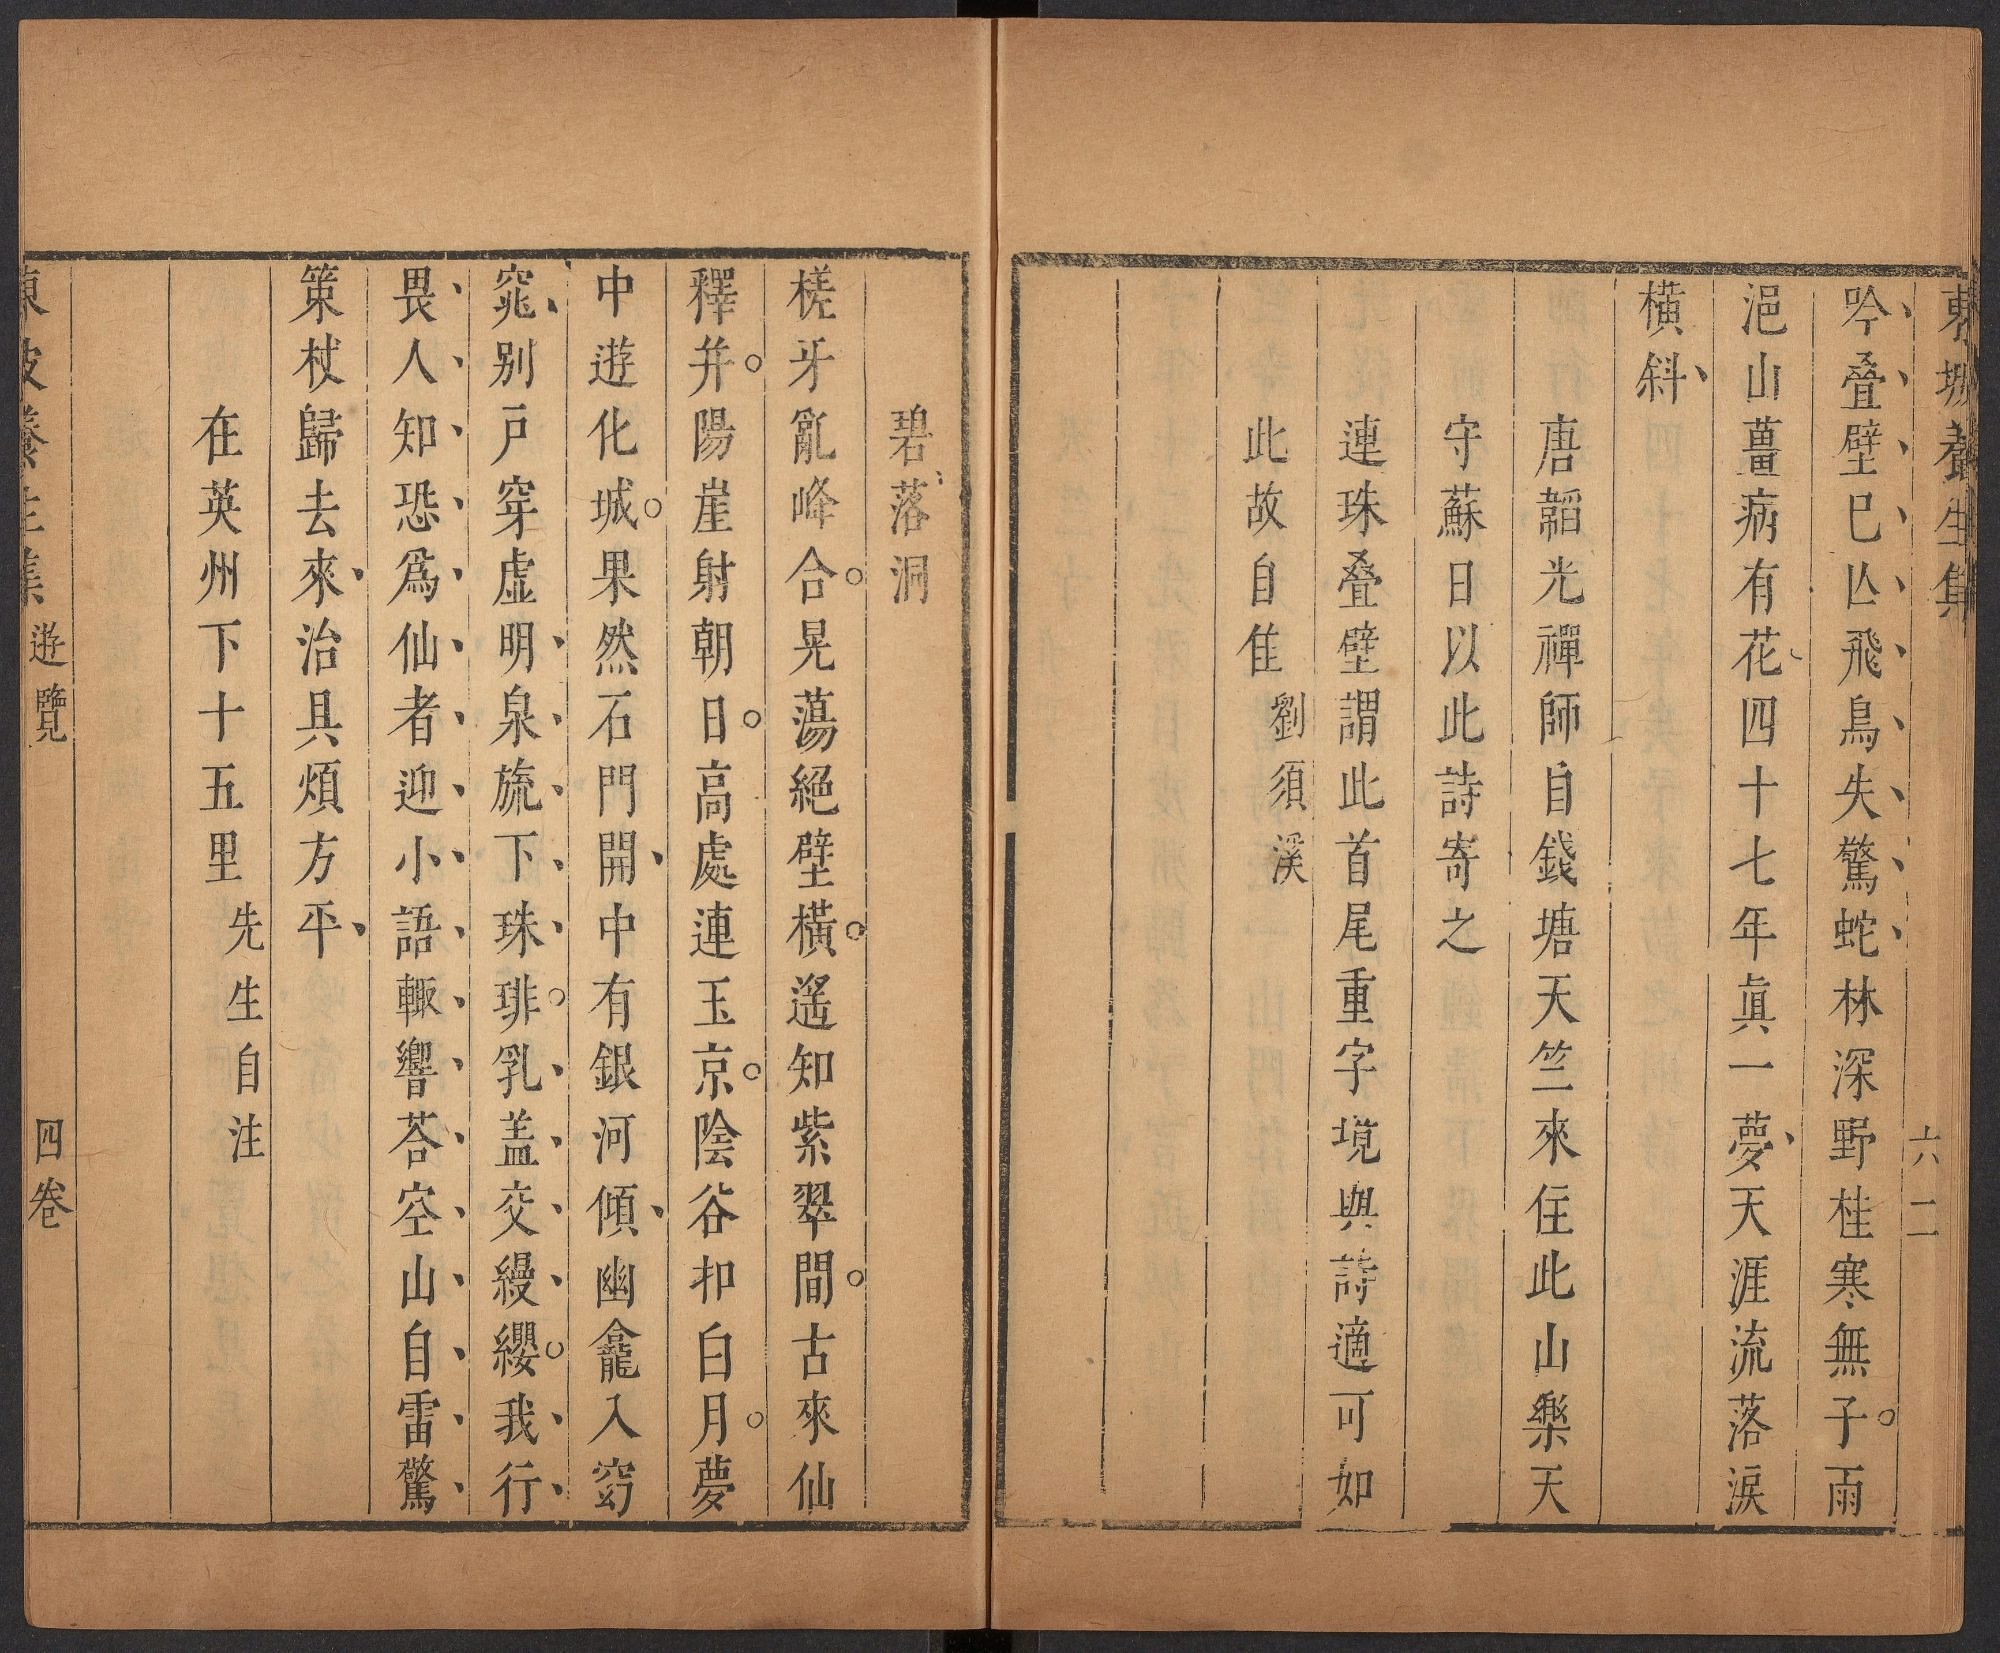 東坡養生集
六二
吟叠壁巳亾飛鳥失驚蛇林深野桂寒無子雨
浥山薑病有花四十七年眞一夢天涯流落淚
橫斜
唐韜光禪師自錢塘天竺來住此山樂天
守蘇日以此詩寄之
連珠叠壁謂此首尾重字境與詩適可如
此故自隹
劉須溪
碧落洞
槎牙亂峰合晃蕩絕壁橫遙知紫翠間古來仙
釋并陽崖射朝日高處連玉京陰谷扣白月夢
中遊化城果然石門開中有銀河傾幽龕入窈
窕別戸穿虛明泉旒下珠琲乳盖交縵纓我行
畏人知恐爲仙者迎小語輙響荅空山自雷驚
策杖歸去來治具煩方平
在英州下十五里先生自注
東坡養生集 遊覽
四卷